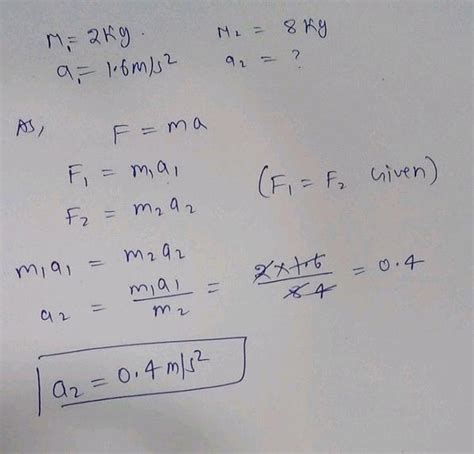 M₁ = 2Kg. M₂ = 8Kg
a₁ = 1.6m/s² a₂ = ?
As, F = ma
F₁ = m₁a₁
(F₁ = F₂ Given)
F₂ = m₂a₂
m₁a₁ = m₂a₂
a₂ = m₁a₁/m₂ = 2×1.6/8 4 = 0.4
a₂ = 0.4m/s²